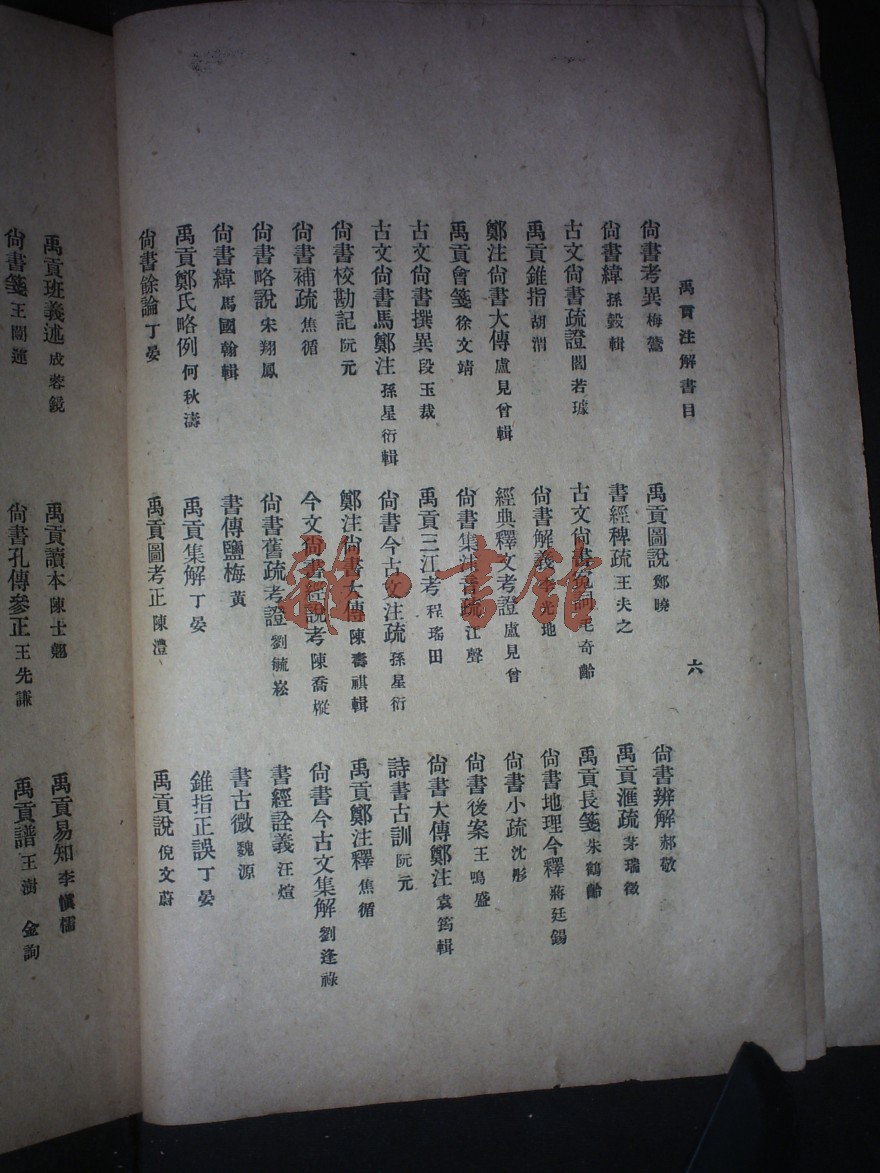 禹貢注解書目 六
尙書考異 梅鷟 禹貢圖說 鄭曉 尙書辨解 郝敬
尙書緯 孫瑴輯 書經稗疏 王夫之 禹貢滙疏 茅瑞徵
古文尙書疏證 閻若璩 古文尙書寃詞 毛奇齡 禹貢長箋 朱鶴齡
禹貢錐指 胡渭 尙書解義 李光地 尙書地理今釋 蔣廷錫
鄭注尙書大傳 盧見曾輯 經典釋文考證 盧見曾 尙書小疏 沈彤
禹貢會箋 徐文靖 尙書集注音疏 江聲 尙書後案 王鳴盛
古文尙書撰異 段玉裁 禹貢三江考 程瑤田 尙書大傳鄭注 袁筠輯
古文尙書馬鄭注 孫星衍輯 尙書今古文注疏 孫星衍 詩書古訓 阮元
尙書校勘記 阮元 鄭注尙書大傳 陳壽祺輯 禹貢鄭注釋 焦循
尙書補疏 焦循 今文尙書經說考 陳喬樅 尙書今古文集解 劉逢祿
尙書略說 宋翔鳳 尙書舊疏考證 劉毓崧 書經詮義 汪煊
尙書緯 馬國翰輯 書傳鹽梅 黃 書古微 魏源
禹貢鄭氏略例 何秋濤 禹貢集解 丁晏 錐指正誤 丁晏
尙書餘論 丁晏 禹貢圖考正 陳澧 禹貢說 倪文蔚
禹貢班義述 成蓉鏡 禹貢讀本 陳士翹 禹貢易知 李愼儒
尙書箋 王闓運 尙書孔傳參正 王先謙 禹貢譜 王澍 金詢
雜·書館